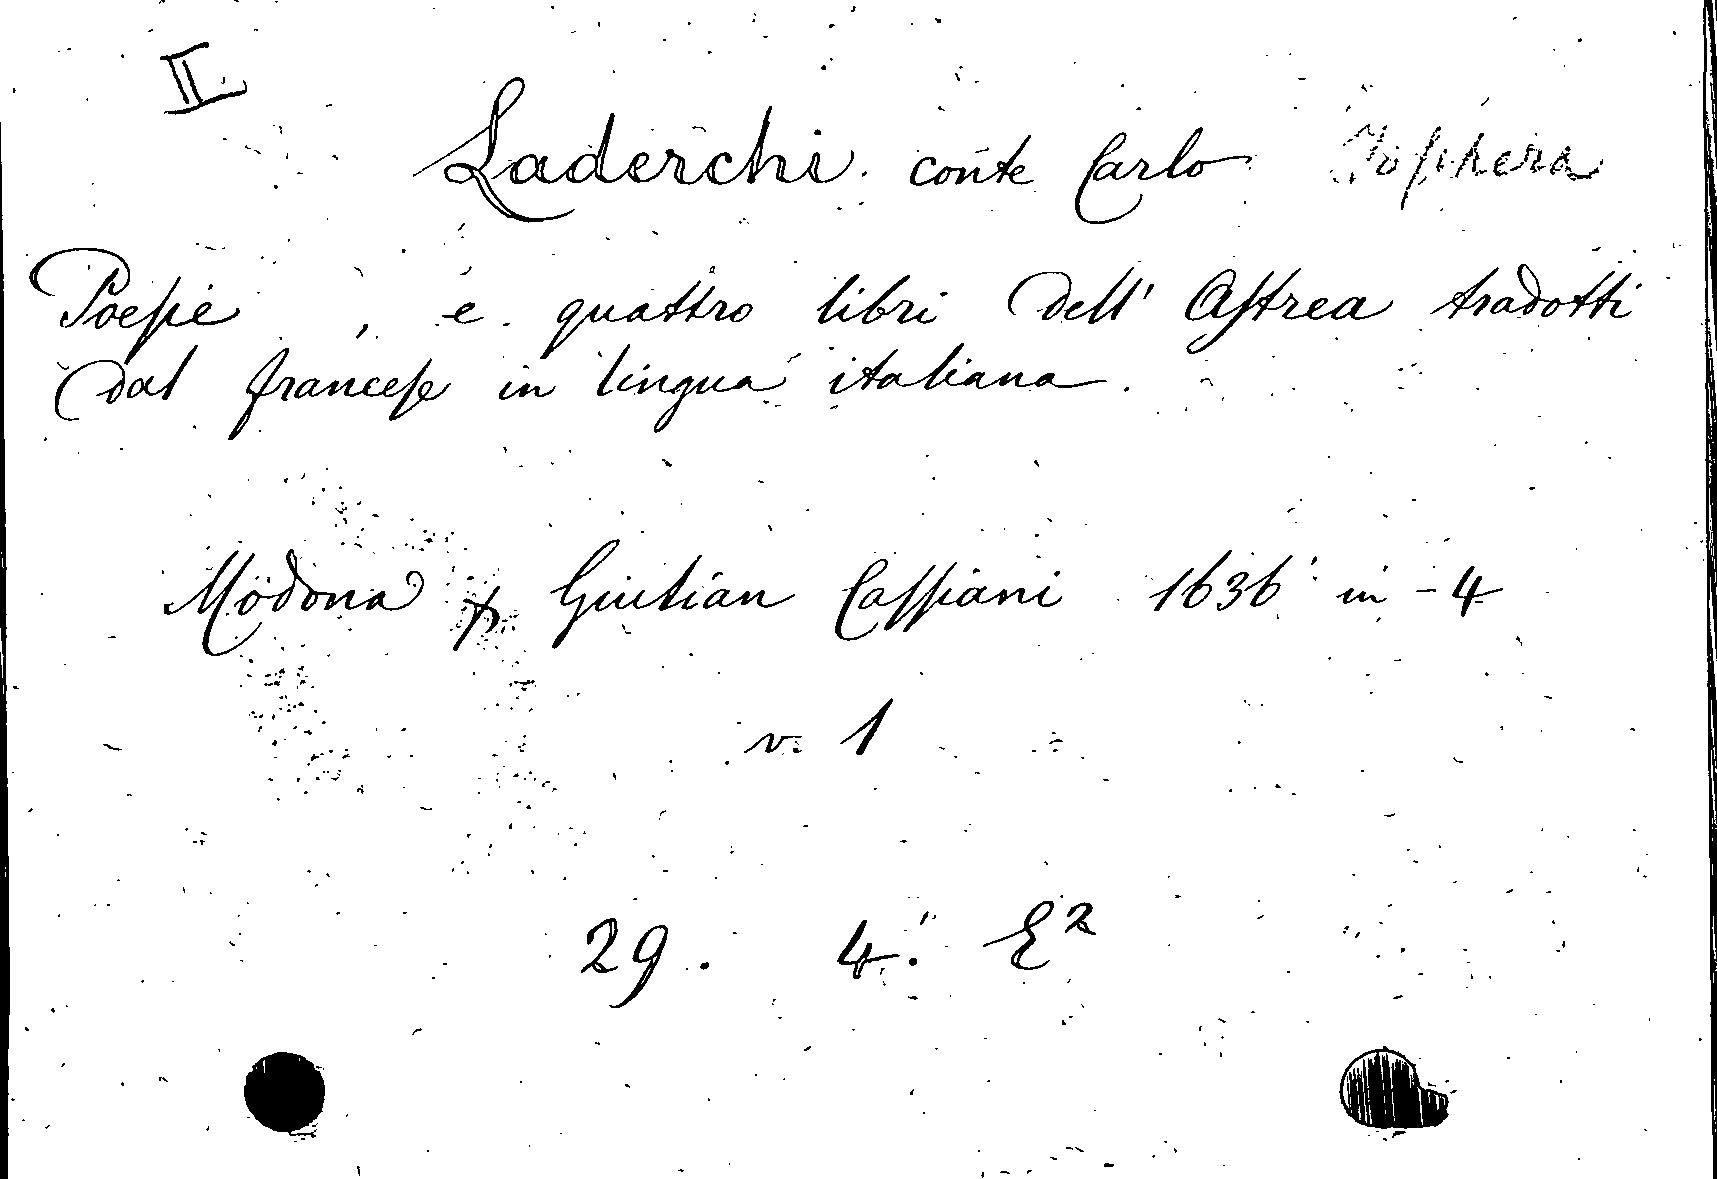 II
Laderchi conte Carlo
Poesie, e quattro libri dell' Astrea tradotti
dal francese in lingua italiana.
Modona p. Giulian Cassiani 1636 in-4
v. 1
29. 4. E²